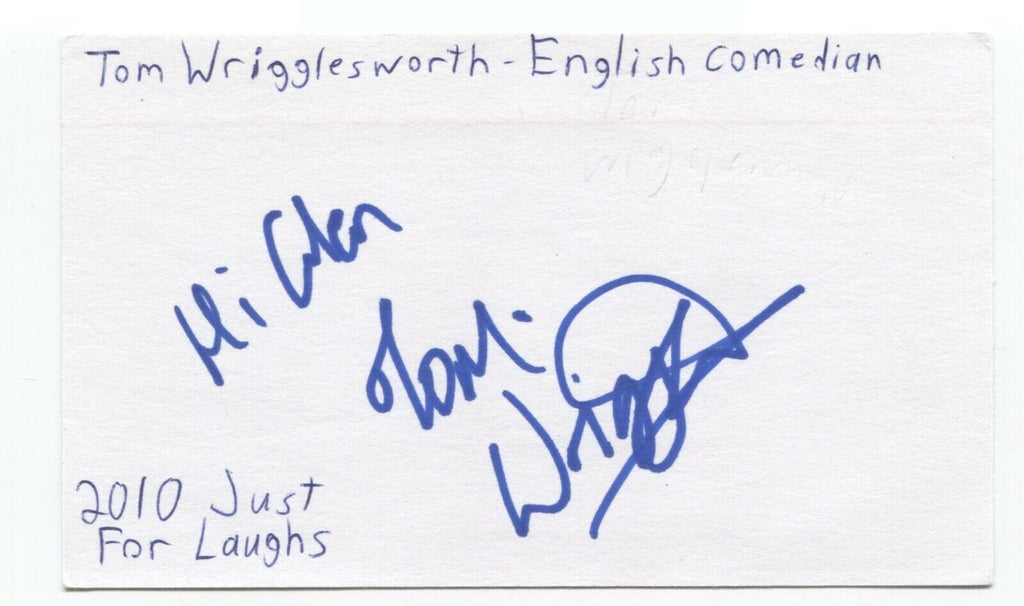 Tom Wrigglesworth - English Comedian
Hi Glen
Tom
Wriggl
2010 Just
For Laughs